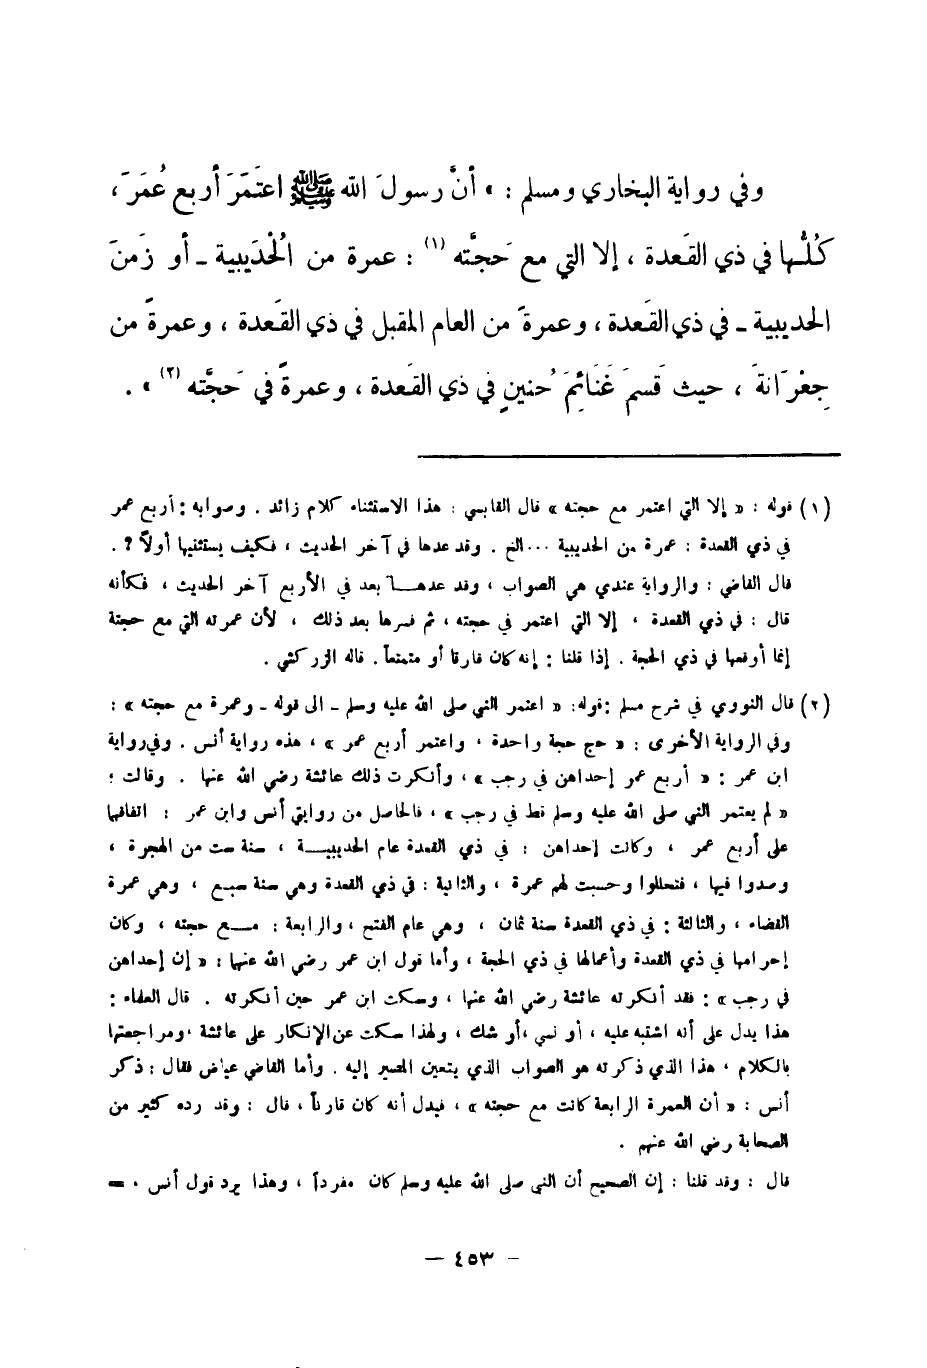 وفي رواية البخاري ومسلم : « أنَّ رسولَ الله ﷺ اعتَمَرَ أربع عُمَرَ ،
كُلُّها في ذي القَعدة ، إلا التي مع حَجَّته (١) : عمرة من الُحْدَيبية ـ أو زَمنَ
الحديبية ـ في ذي القَعدة ، وعمرةً من العام المقبل في ذي القَعدة ، وعمرةً من
جِعْرَانةَ ، حيث قَسمَ غَنَائِمَ حُنينٍ في ذي القَعدة ، وعمرةً في حَجَّته (٢) » .
(١) قوله : « إلا التي اعتمر مع حجته » قال القابسي : هذا الاستثناء كلام زائد . وصوابه : أربع عمر
في ذي القعدة : عمرة من الحديبية ... الخ . وقد عدها في آخر الحديث ، فكيف يستثنيها أولاً ؟ .
قال القاضي : والرواية عندي هي الصواب ، وقد عدهـا بعد في الأربع آخر الحديث ، فكأنه
قال : في ذي القعدة ، إلا التي اعتمر في حجته ، ثم فسرها بعد ذلك ، لأن عمرته التي مع حجتة
إنما أوقعها في ذي الحجة . إذا قلنا : إنه كان قارنا أو متمتعاً . قاله الزركشي .
(٢) قال النووي في شرح مسلم : قوله : « اعتمر النبي صلى الله عليه وسلم ـ الى قوله ـ وعمرة مع حجته » :
وفي الرواية الأخرى : « حج حجة واحدة ، واعتمر أربع عمر » ، هذه رواية أنس . وفي رواية
ابن عمر : « أربع عمر إحداهن في رجب » ، وأنكرت ذلك عائشة رضي الله عنها . وقالت :
« لم يعتمر النبي صلى الله عليه وسلم قط في رجب » ، فالحاصل من روايتي أنس وابن عمر : اتفاقهما
على أربع عمر ، وكانت إحداهن : في ذي القعدة عام الحديبيـة ، سنة ست من الهجرة ،
وصدوا فيها ، فتحللوا وحسبت لهم عمرة ، والثانية : في ذي القعدة وهي سنة سبع ، وهي عمرة
القضاء ، والثالثة : في ذي القعدة سنة ثمان ، وهي عام الفتح ، والرابعة : مـع حجته ، وكان
إحرامها في ذي القعدة وأعمالها في ذي الحجة ، وأما قول ابن عمر رضي الله عنهما : « إن إحداهن
في رجب » : فقد أنكرته عائشة رضي الله عنها ، وسكت ابن عمر حين أنكرته . قال العلماء :
هذا يدل على أنه اشتبه عليه ، أو نسي ، أو شك ، ولهذا سكت عن الإنكار على عائشة ، ومراجعتها
بالكلام ، هذا الذي ذكرته هو الصواب الذي يتعين المصير إليه . وأما القاضي عياض فقال : ذكر
أنس : « أن العمرة الرابعة كانت مع حجته » ، فيدل أنه كان قارناً ، قال : وقد رده كثير من
الصحابة رضي الله عنهم .
قال : وقد قلنا : إن الصحيح أن النبي صلى الله عليه وسلم كان مفرداً ، وهذا يرد قول أنس ، =
— ٤٥٣ —